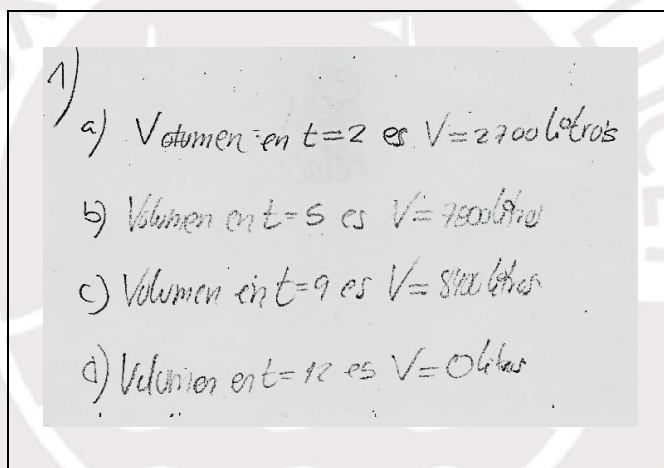 1)
a) Volumen en t=2 es V=2700 litros
b) Volumen en t=5 es V=7800 litros
c) Volumen en t=9 es V=8400 litros
d) Volumen en t=12 es V=0 litros